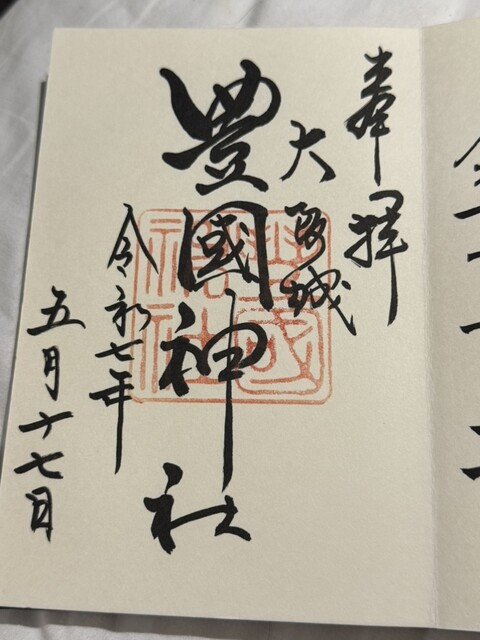 奉拝
大阪城
豊國神社
豊國神社
令和七年
五月十七日